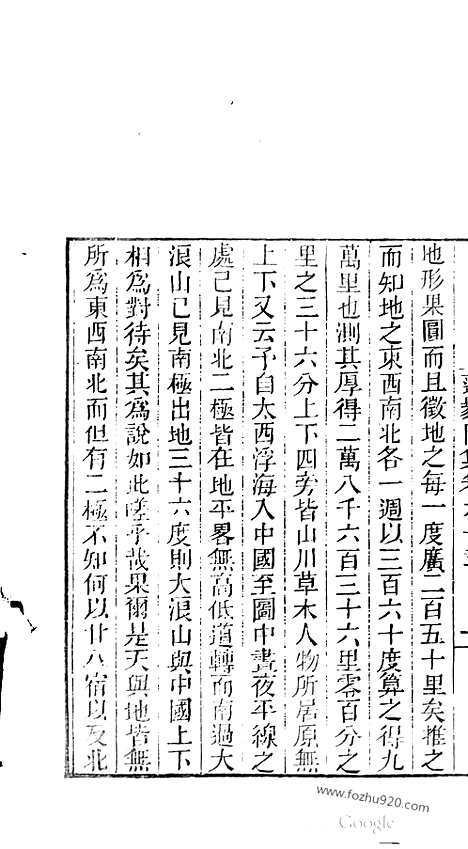 地形果圓而且徵地之每一度廣二百五十里矣推之
而知地之東西南北各一週以三百六十度算之得九
萬里也測其厚得二萬八千六百三十六里零百分之
里之三十六分上下四旁皆山川草木人物所居原無
上下又云予自太西浮海入中國至圖中晝夜平線之
處已見南北二極皆在地平畧無高低道轉而南過大
浪山已見南極出地三十六度則大浪山與中國上下
相為對待矣其為說如此嗟乎哉果爾是天與地皆無
所為東西南北而但有二極不知何以廿八宿以及北
www.fozhu920.com
Google